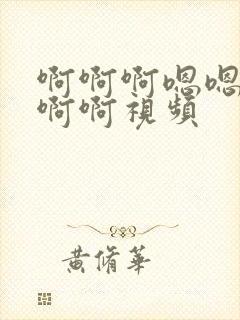 啊啊啊嗯嗯
啊啊視頻
黃脩華